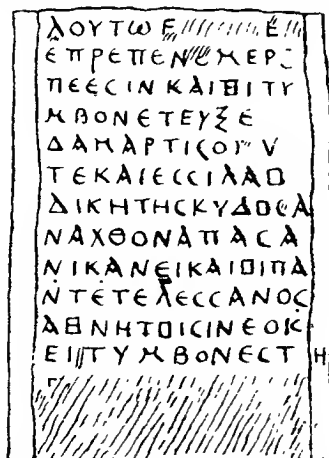 ΛΟΥΤΩΕ Ε
ΕΠΡΕΠΕΝ ΜΕΡ
ΠΕΕCΙΝΚΑΙΘΙΤΥ
ΜΒΟΝΕΤΕΥΞΕ
ΔΑΜΑΡΤΙCΟΥ V
ΤΕΚΑΙΕCCΙΛΑΟ
ΔΙΚΗΤΗCΚΥΔΟCΑ
ΝΑΧΘΟΝΑΠΑCΑ
ΝΙΚΑΝΕΙΚΑΙΟΙΠΑ
ΝΤΕΤΕΛΕCCΑΝΟC
ΑΘΝΗΤΟΙCΙΝΕΟΚ
ΕΙ ΤΥΜΒΟΝΕCΤ Η